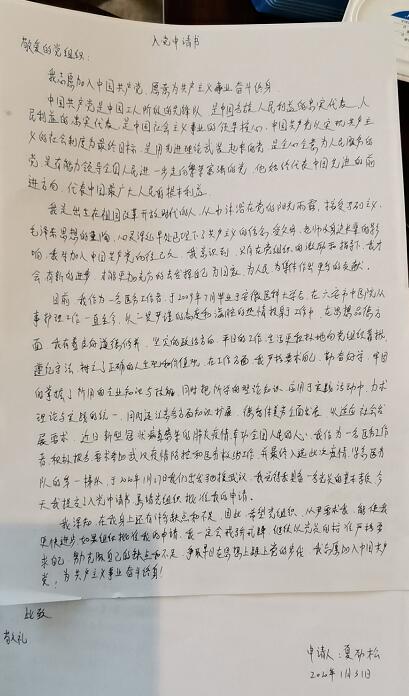 入党申请书
敬爱的党组织：
我志愿加入中国共产党，愿意为共产主义事业奋斗终身。
中国共产党是中国工人阶级的先锋队，是中国各族人民利益的忠实代表，人
民利益的忠实代表，是中国社会主义事业的领导核心。中国共产党以实现共产主
义的社会制度为最终目标，是用先进理论武装起来的党，是全心全意为人民服务的
党，是有能力领导全国人民进一步走向繁荣富强的党。他始终代表中国先进的前
进方向，代表中国最广大人民的根本利益。
我是出生在祖国改革开放时代的人，从小沐浴在党的阳光雨露，接受马列主义、
毛泽东思想的熏陶，心灵深处早已埋下了共产主义的信念。受父母
响，我要加入中国共产党的 我意识到，只有在党组织的激励和指导下，我才
会有新的进步，才能更加充分的去发挥自己 为国家、为人民 作出更多的贡献。
目前，我作为一名医务工作者，于2009年7月毕业于安徽医科大学后，在六安市中医院从
事护理工作一直至今，从一 的态度和 的热情投身于工作中，在思想品德方
面，我有着良好道德修养，坚定的政治方向，平日的工作、生活里积极地向党组织靠拢，
遵纪守法，树立了正确的人生观和价值观。在工作方面，我严格要求自己，勤奋好学，牢固
的掌握了所用的专业知识与技能，同时把所学的理论知识，应用于实践活动中，力求
理论与实践的统一，同时还注意各方面知识扩展， 全面发展，以适应社会发
展要求。近日新型冠状病毒感染的肺炎疫情牵动全国人民的人心，我作为一名医务工作
者，积极报名要求参加武汉疫情防控和医务救治工作，并最终入选此次六安市医务
队的第一梯队，于2020年1月27日我们出发前往武汉。 今
天我提交了入党申请书，恳请党组织批准我的申请。
我深知，在我身上还有许多缺点和不足，因此，希望党组织，从严要求我，能使我
更快进步。如果组织批准我的申请，我一定会 继续以党员的标准严格要
求自己，努力克服自己的缺点和不足，争取早日在思想上跟上党的步伐，我自愿加入中国共产
党，为共产主义事业奋斗终身！
此致
敬礼
申请人：夏劲松
2020年1月31日